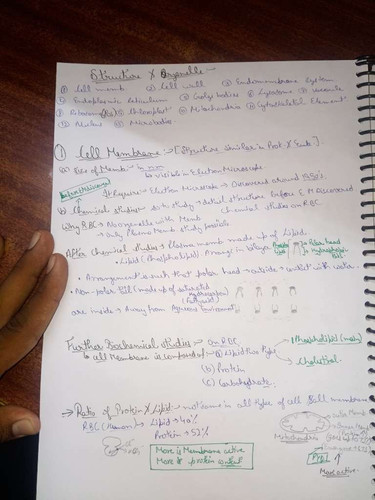 Structure & Organelle -
① Cell memb ② Cell wall ③ Endomembrane System
④ Endoplasmic Reticulum ⑤ Golgi bodies ⑥ Lysosome ⑦ Vacuole
⑧ Ribosome ⑨ Chloroplast ⑩ Mitochondria Cytoskeletal Element
Nucleus Microbodies
① Cell Membrane → [Structure similar in Prok & Euk]
(a) Size of Memb in nm
is visible in Electron Microscope
It Require → Electron Microscope → Discovered around 1950's.
(b) Chemical studies to study detail structure before E.M discovered
Chemical studies on RBC
Why RBC → No organelle with Memb
Only Plasma Memb study possible
After Chemical studies → Plasma memb made up of Lipid.
Lipid (Phospholipid) Arrange in bilayer
Polar head
Hydrophilic
• Arrangement is such that polar head → outside → contact with water.
• Non polar tail (made up of saturated
Hydrophobic
are inside → Away from Aqueous Environment
Further Biochemical studies → on RBC
→ all Membrane is composed of
(a) Lipid two type
Phospholipid (main)
Cholesterol.
(b) Protein
(c) Carbohydrate.
→ Ratio of Protein & Lipid not same in all type of cell
membrane
RBC (Human) → Lipid → 40%
Protein → 52%
Mitochondria
More is Membrane active
More is protein content
More active.